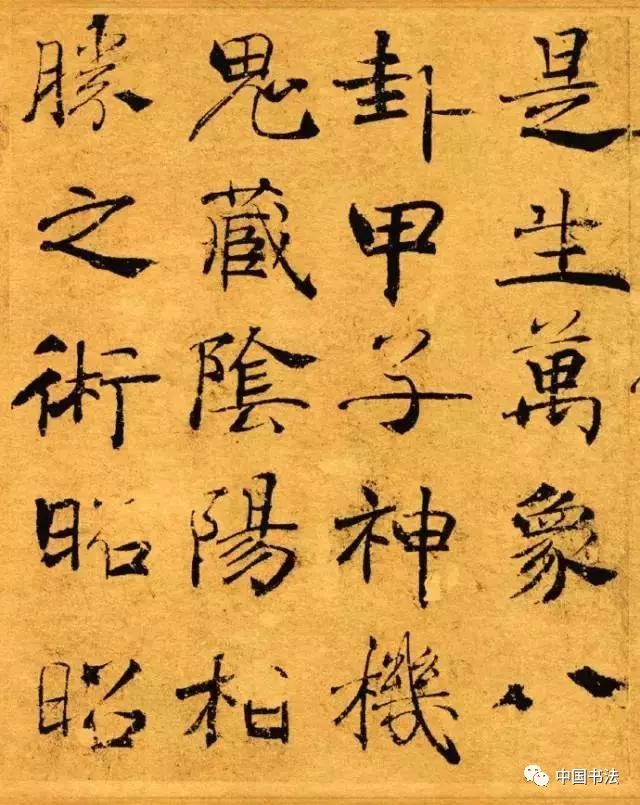 是生萬象八
卦甲子神機
鬼藏陰陽相
勝之術昭昭
中国书法